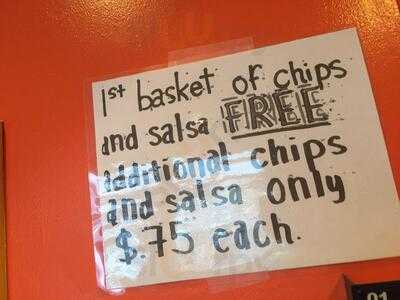 1st basket of chips
and salsa FREE
additional chips
and salsa only
$.75 each.
91